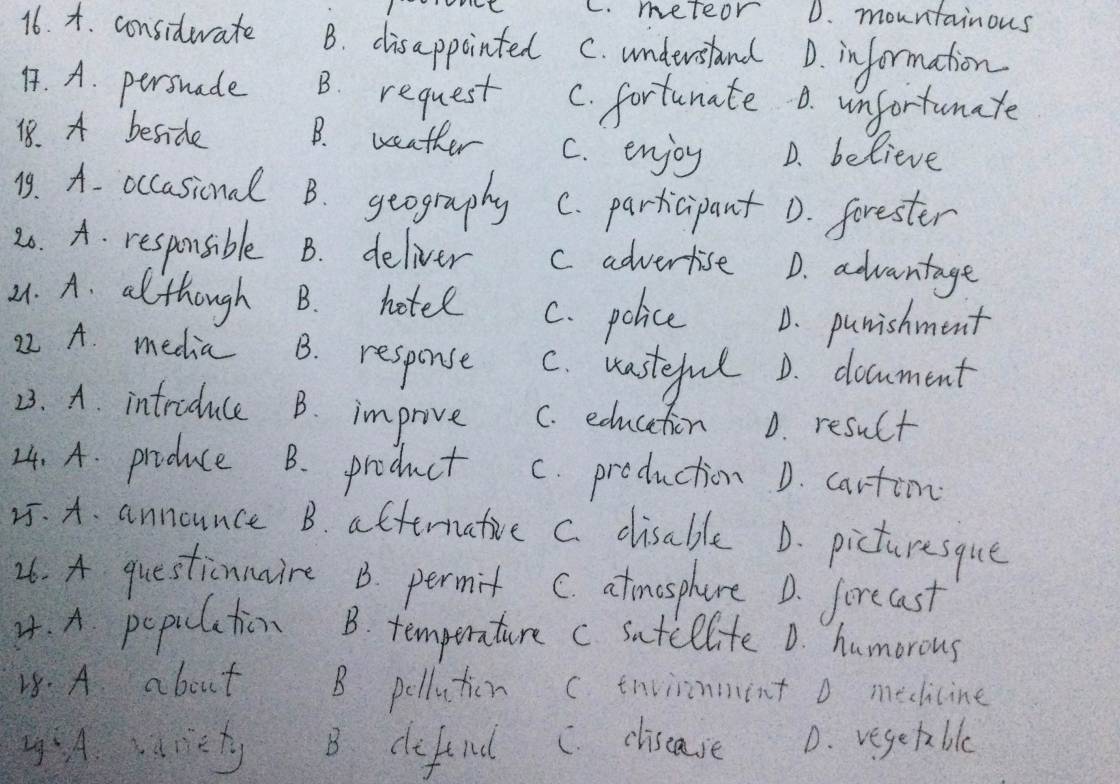 C. meteor D. mountainous
16. A. considerate B. disappointed C. understand D. information
17. A. persuade B. request C. fortunate D. unfortunate
18. A beside B. weather C. enjoy D. believe
19. A- occasional B. geography C. participant D. forester
20. A. responsible B. deliver C advertise D. advantage
21. A. although B. hotel C. police D. punishment
22 A. media B. response C. wasteful D. document
23. A. introduce B. improve C. education D. result
24. A. produce B. product C. production D. carton
25. A. announce B. alternative C. disable D. picturesque
26. A questionnaire B. permit C. atmosphere D. forecast
27. A. population B. temperature C. satellite D. humorous
28. A. about B pollution C environment D medicine
29. A. variety B defend C. disease D. vegetable